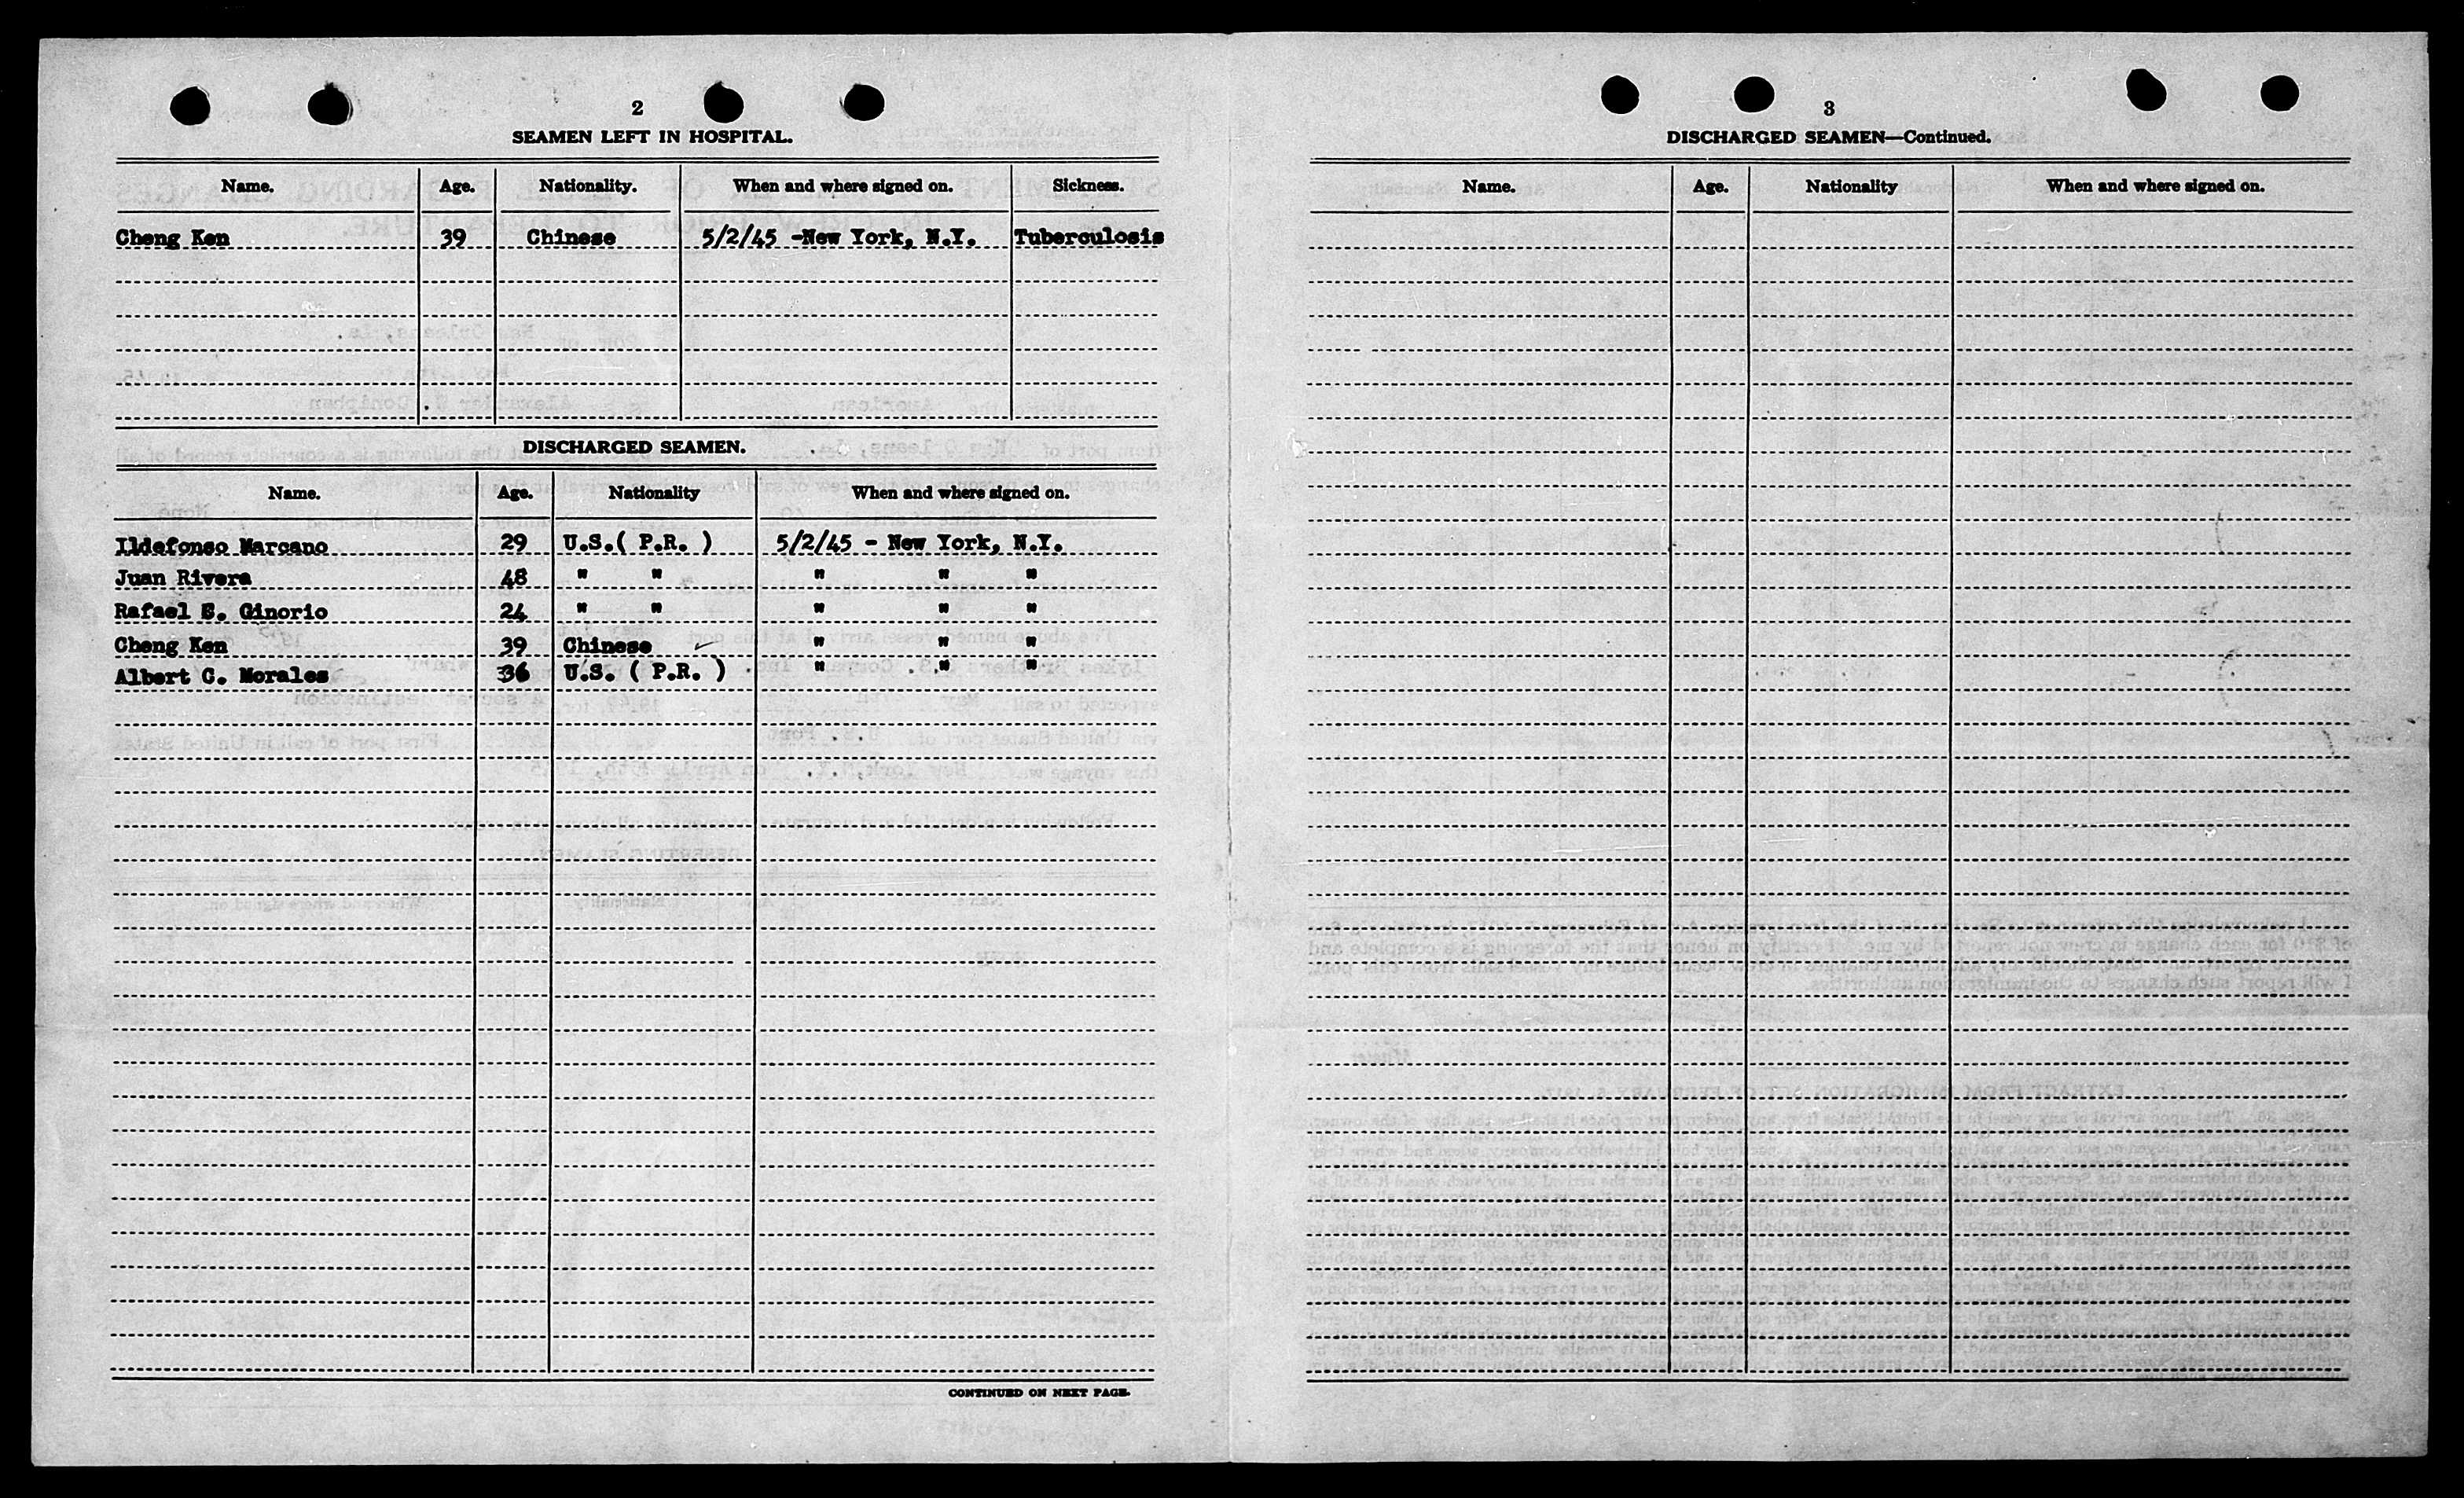 2
SEAMEN LEFT IN HOSPITAL.
Name. Age. Nationality. When and where signed on. Sickness.
Cheng Ken 39 Chinese 5/2/45 -New York, N.Y. Tuberculosis
DISCHARGED SEAMEN.
Name. Age. Nationality When and where signed on.
Ildefonso Marcano 29 U.S.( P.R. ) 5/2/45 - New York, N.Y.
Juan Rivera 48 " " " " "
Rafael S. Ginorio 24 " " " " "
Cheng Ken 39 Chinese ✓ " " "
Albert C. Morales 36 U.S. ( P.R. ) " " "
CONTINUED ON NEXT PAGE.
3
DISCHARGED SEAMEN—Continued.
Name. Age. Nationality When and where signed on.